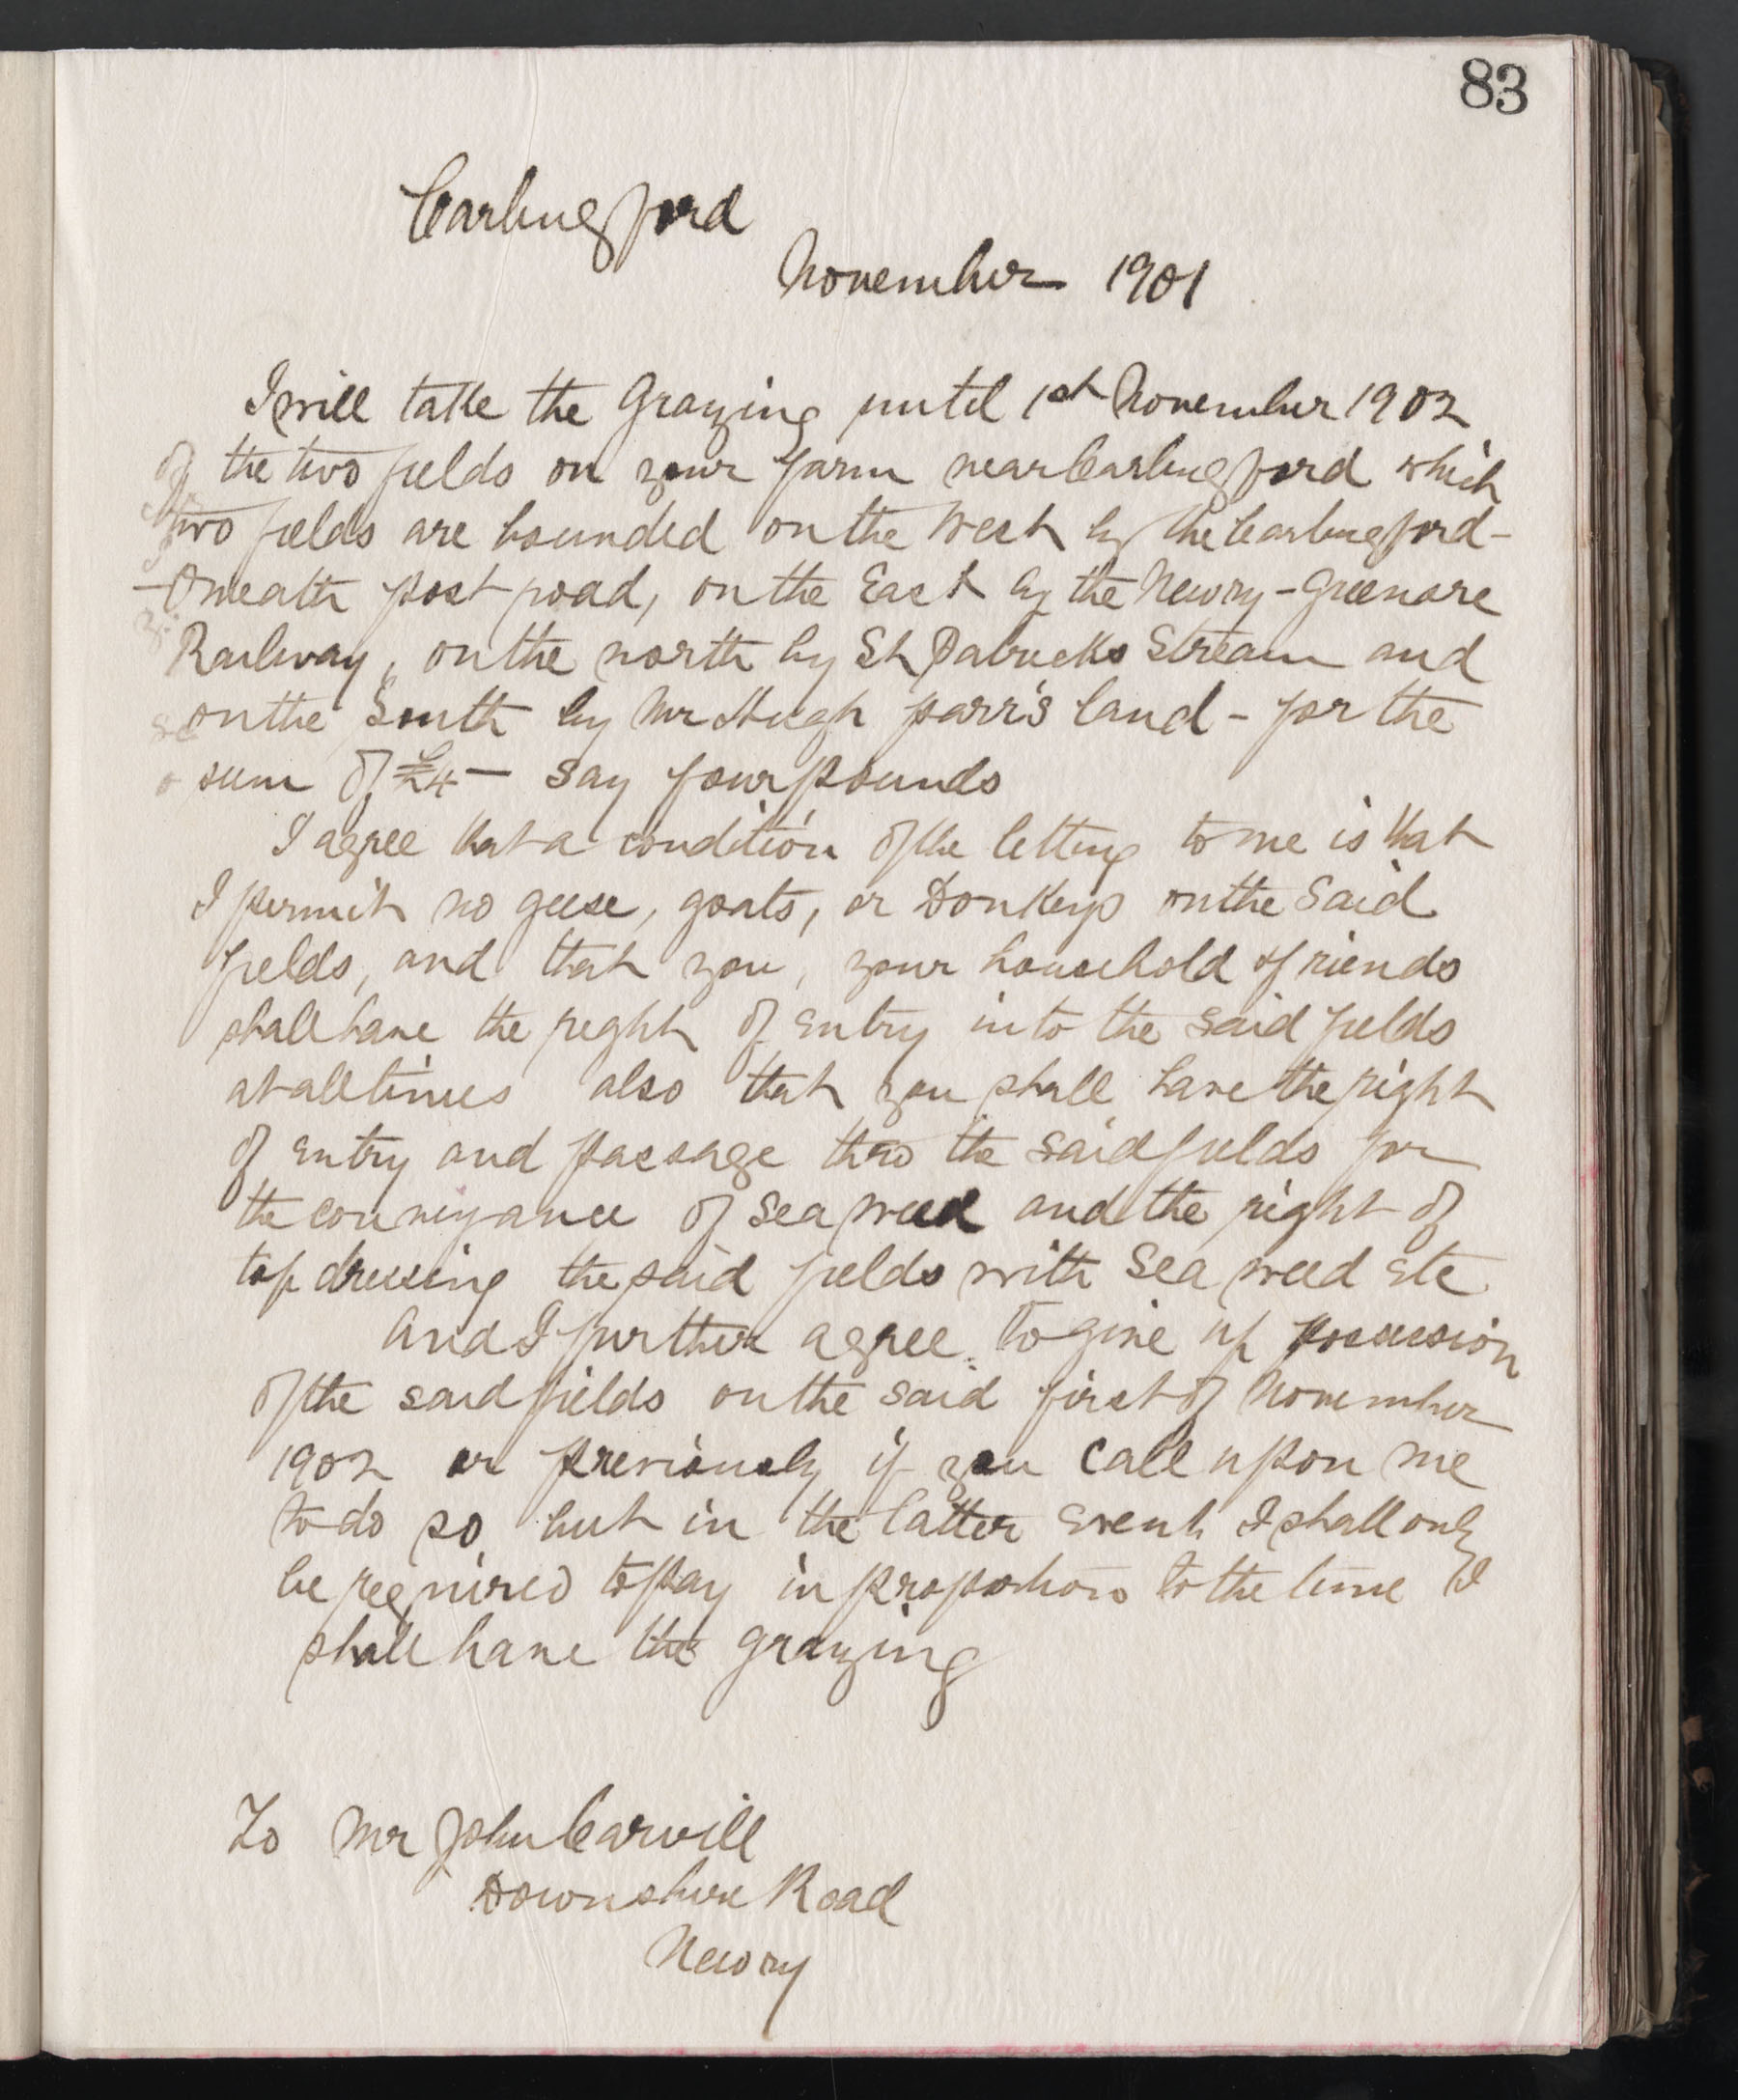 83
Carlingford
November 1901
I will take the Grazing until 1st November 1902
of the two fields on your farm near Carlingford which
two fields are bounded on the West by the Carlingford-
-Omeath post road, on the East by the Newry-Greenore
Railway, on the north by St Patricks Stream and
on the South by Mr Hugh parr's land - for the
sum of £4 - say four pounds
I agree that a condition of the letting to me is that
I permit no geese, goats, or Donkeys on the Said
fields, and that you, your household & friends
shall have the right of entry into the said fields
at all times also that you shall have the right
of entry and passage thro the said fields for
the conveyance of Sea weed and the right of
top dressing the said fields with Sea weed etc
And I further agree to give up possession
of the said fields on the said first of November
1902 or previously if you call upon me
to do so but in the latter event I shall only
be required to pay in proportion to the time I
shall have the grazing
To Mr John Carvill
Downshire Road
Newry